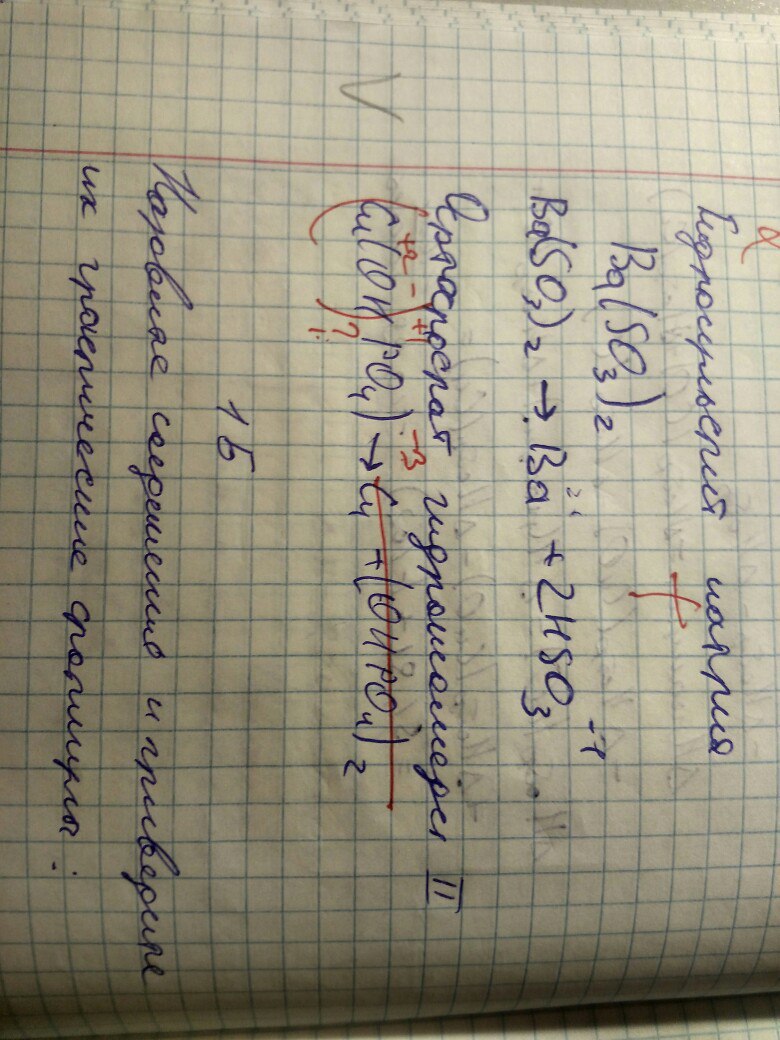 Гидросульфит натрия
Ba(SO₃)₂
Ba(SO₃)₂ → Ba²⁺ + 2HSO₃⁻
Ортофосфат гидроксомеди II
Cu(OH PO₄) → Cu + (OHPO₄)₂
+2 - +1 -3
?
1Б
Назовите соединение и приведите
их графические формулы: